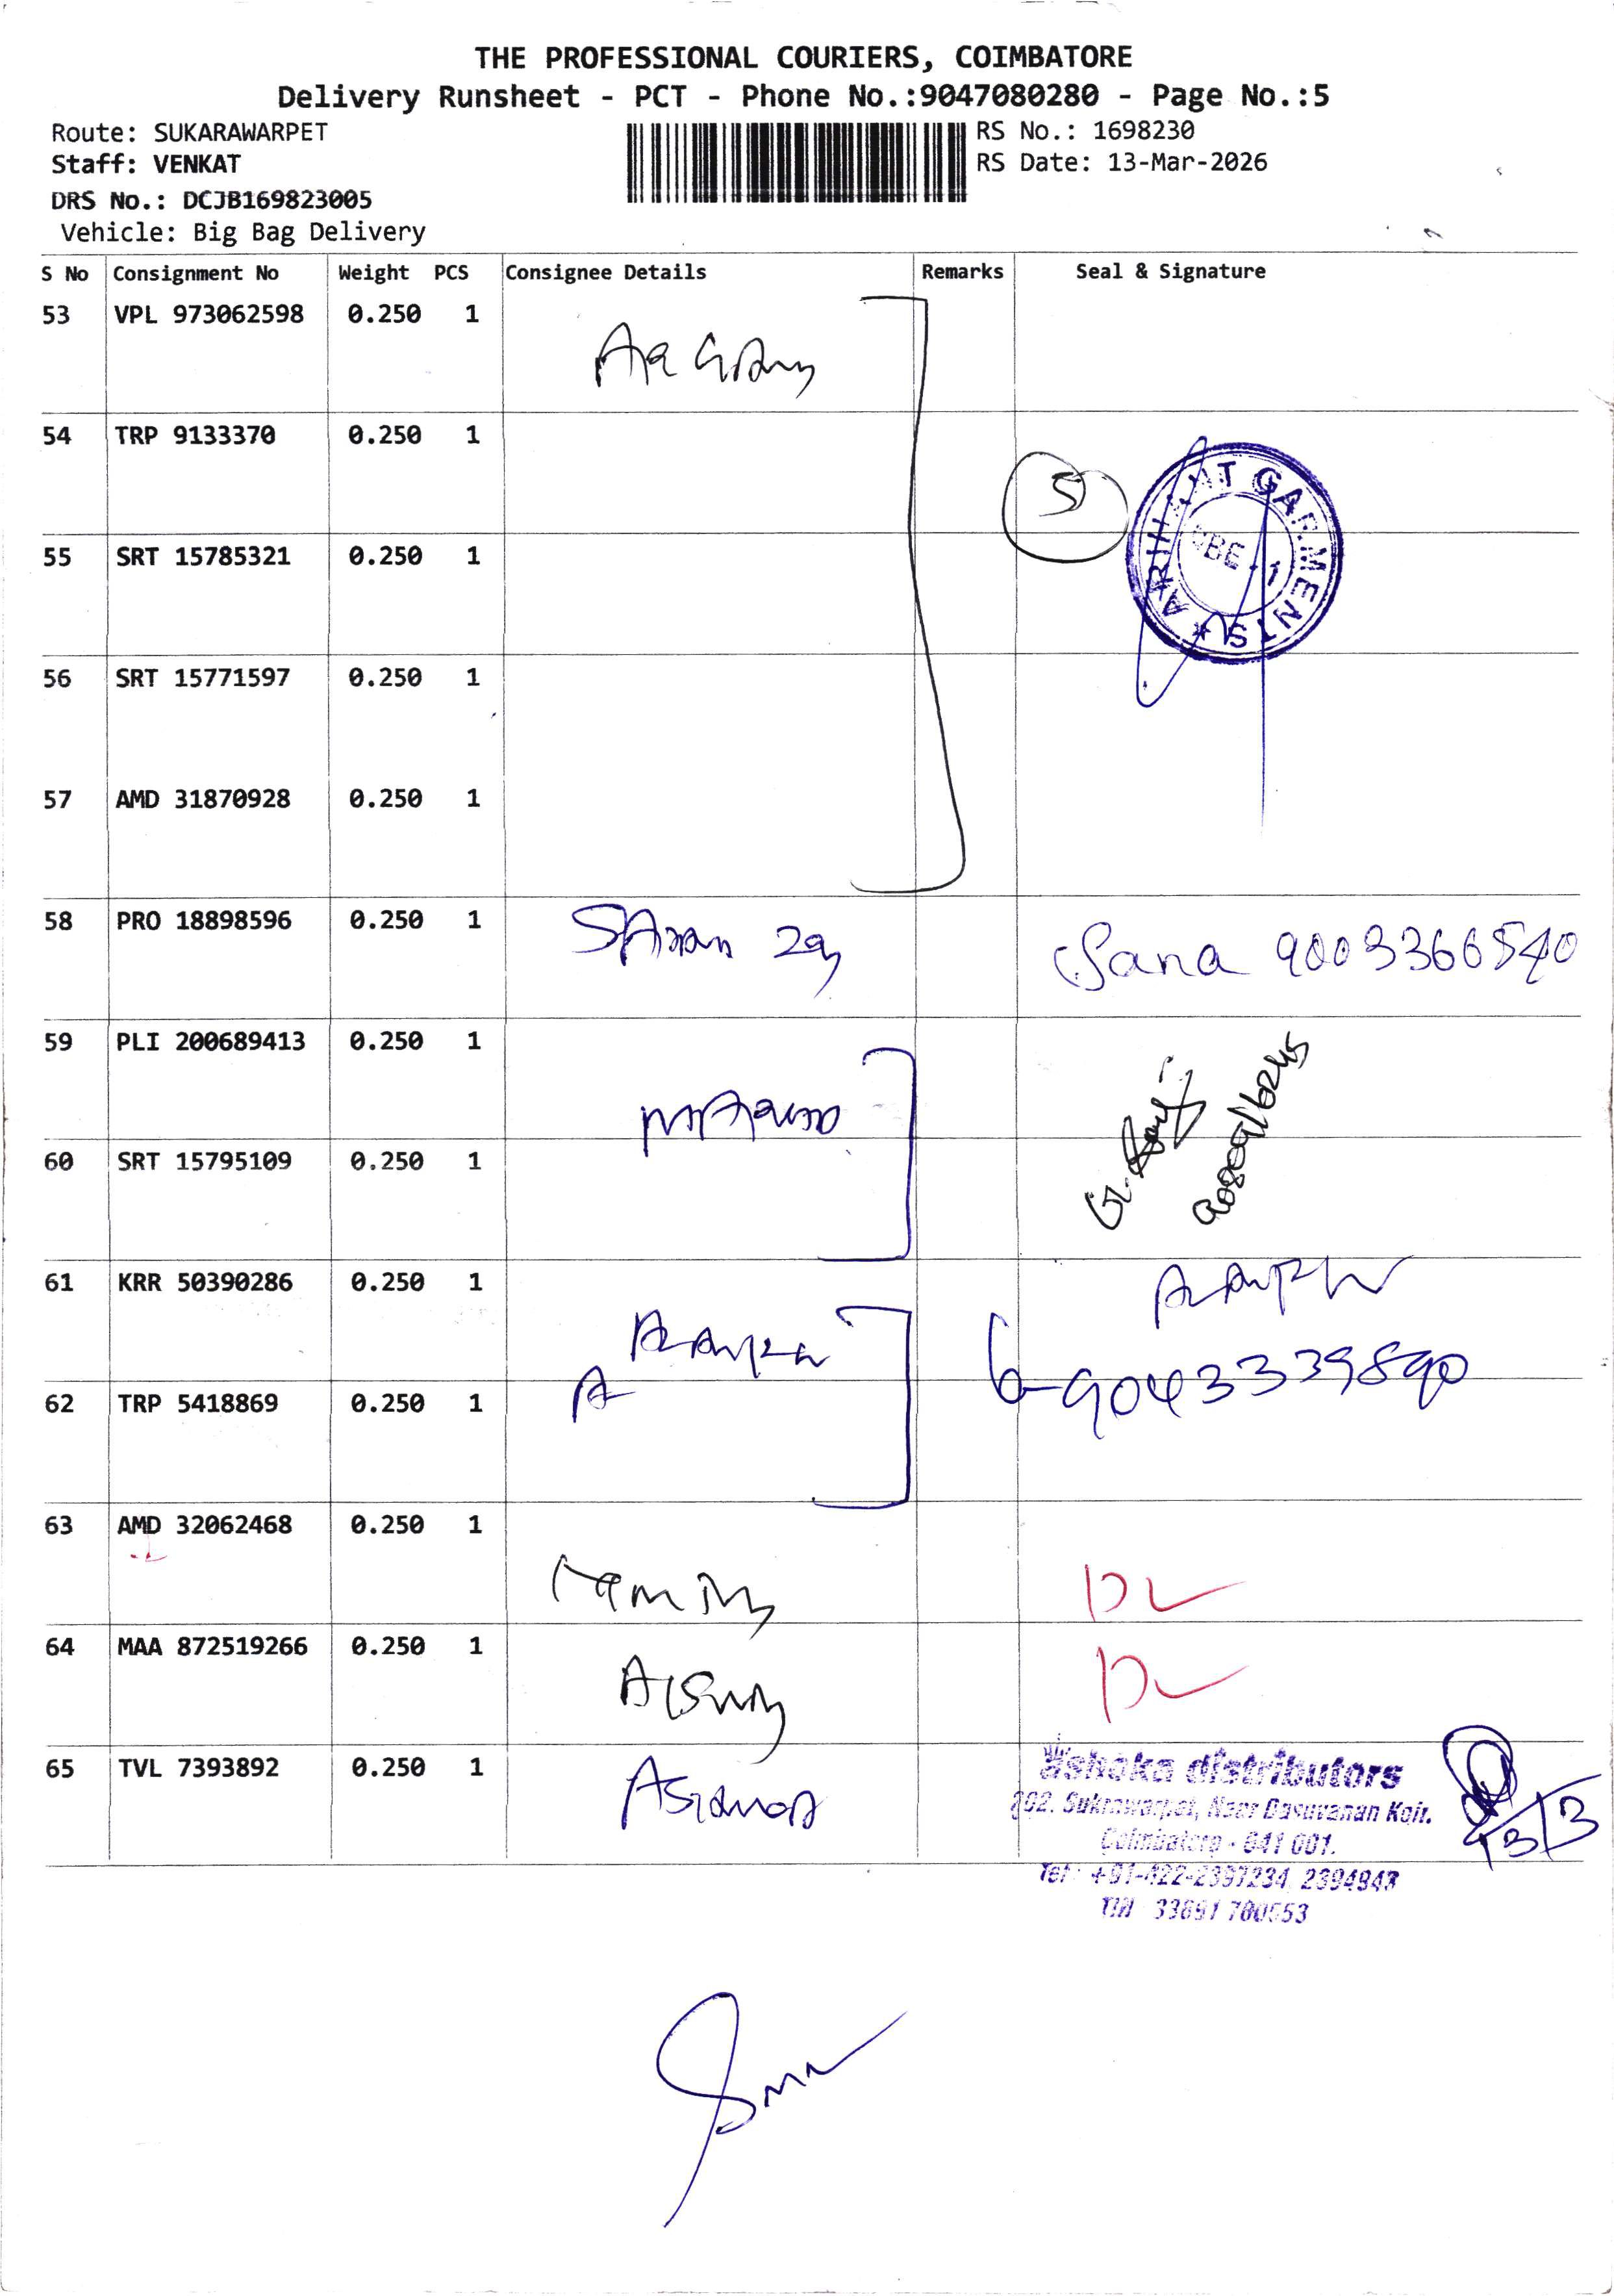 THE PROFESSIONAL COURIERS, COIMBATORE
Delivery Runsheet - PCT - Phone No.:9047080280 - Page No.:5
Route: SUKARAWARPET
Staff: VENKAT
DRS No.: DCJB169823005
Vehicle: Big Bag Delivery
RS No.: 1698230
RS Date: 13-Mar-2026
S No Consignment No Weight PCS Consignee Details Remarks Seal & Signature
53 VPL 973062598 0.250 1
54 TRP 9133370 0.250 1
5
ARIHANT GARMENTS
CBE - 1
55 SRT 15785321 0.250 1
56 SRT 15771597 0.250 1
57 AMD 31870928 0.250 1
58 PRO 18898596 0.250 1 Sana 9003366540
59 PLI 200689413 0.250 1
60 SRT 15795109 0.250 1
61 KRR 50390286 0.250 1
62 TRP 5418869 0.250 1 9043339890
63 AMD 32062468 0.250 1
64 MAA 872519266 0.250 1
65 TVL 7393892 0.250 1
Ashoka distributors
Coimbatore - 641 001.
Tel : +91-422-2397234, 2394943
13/3